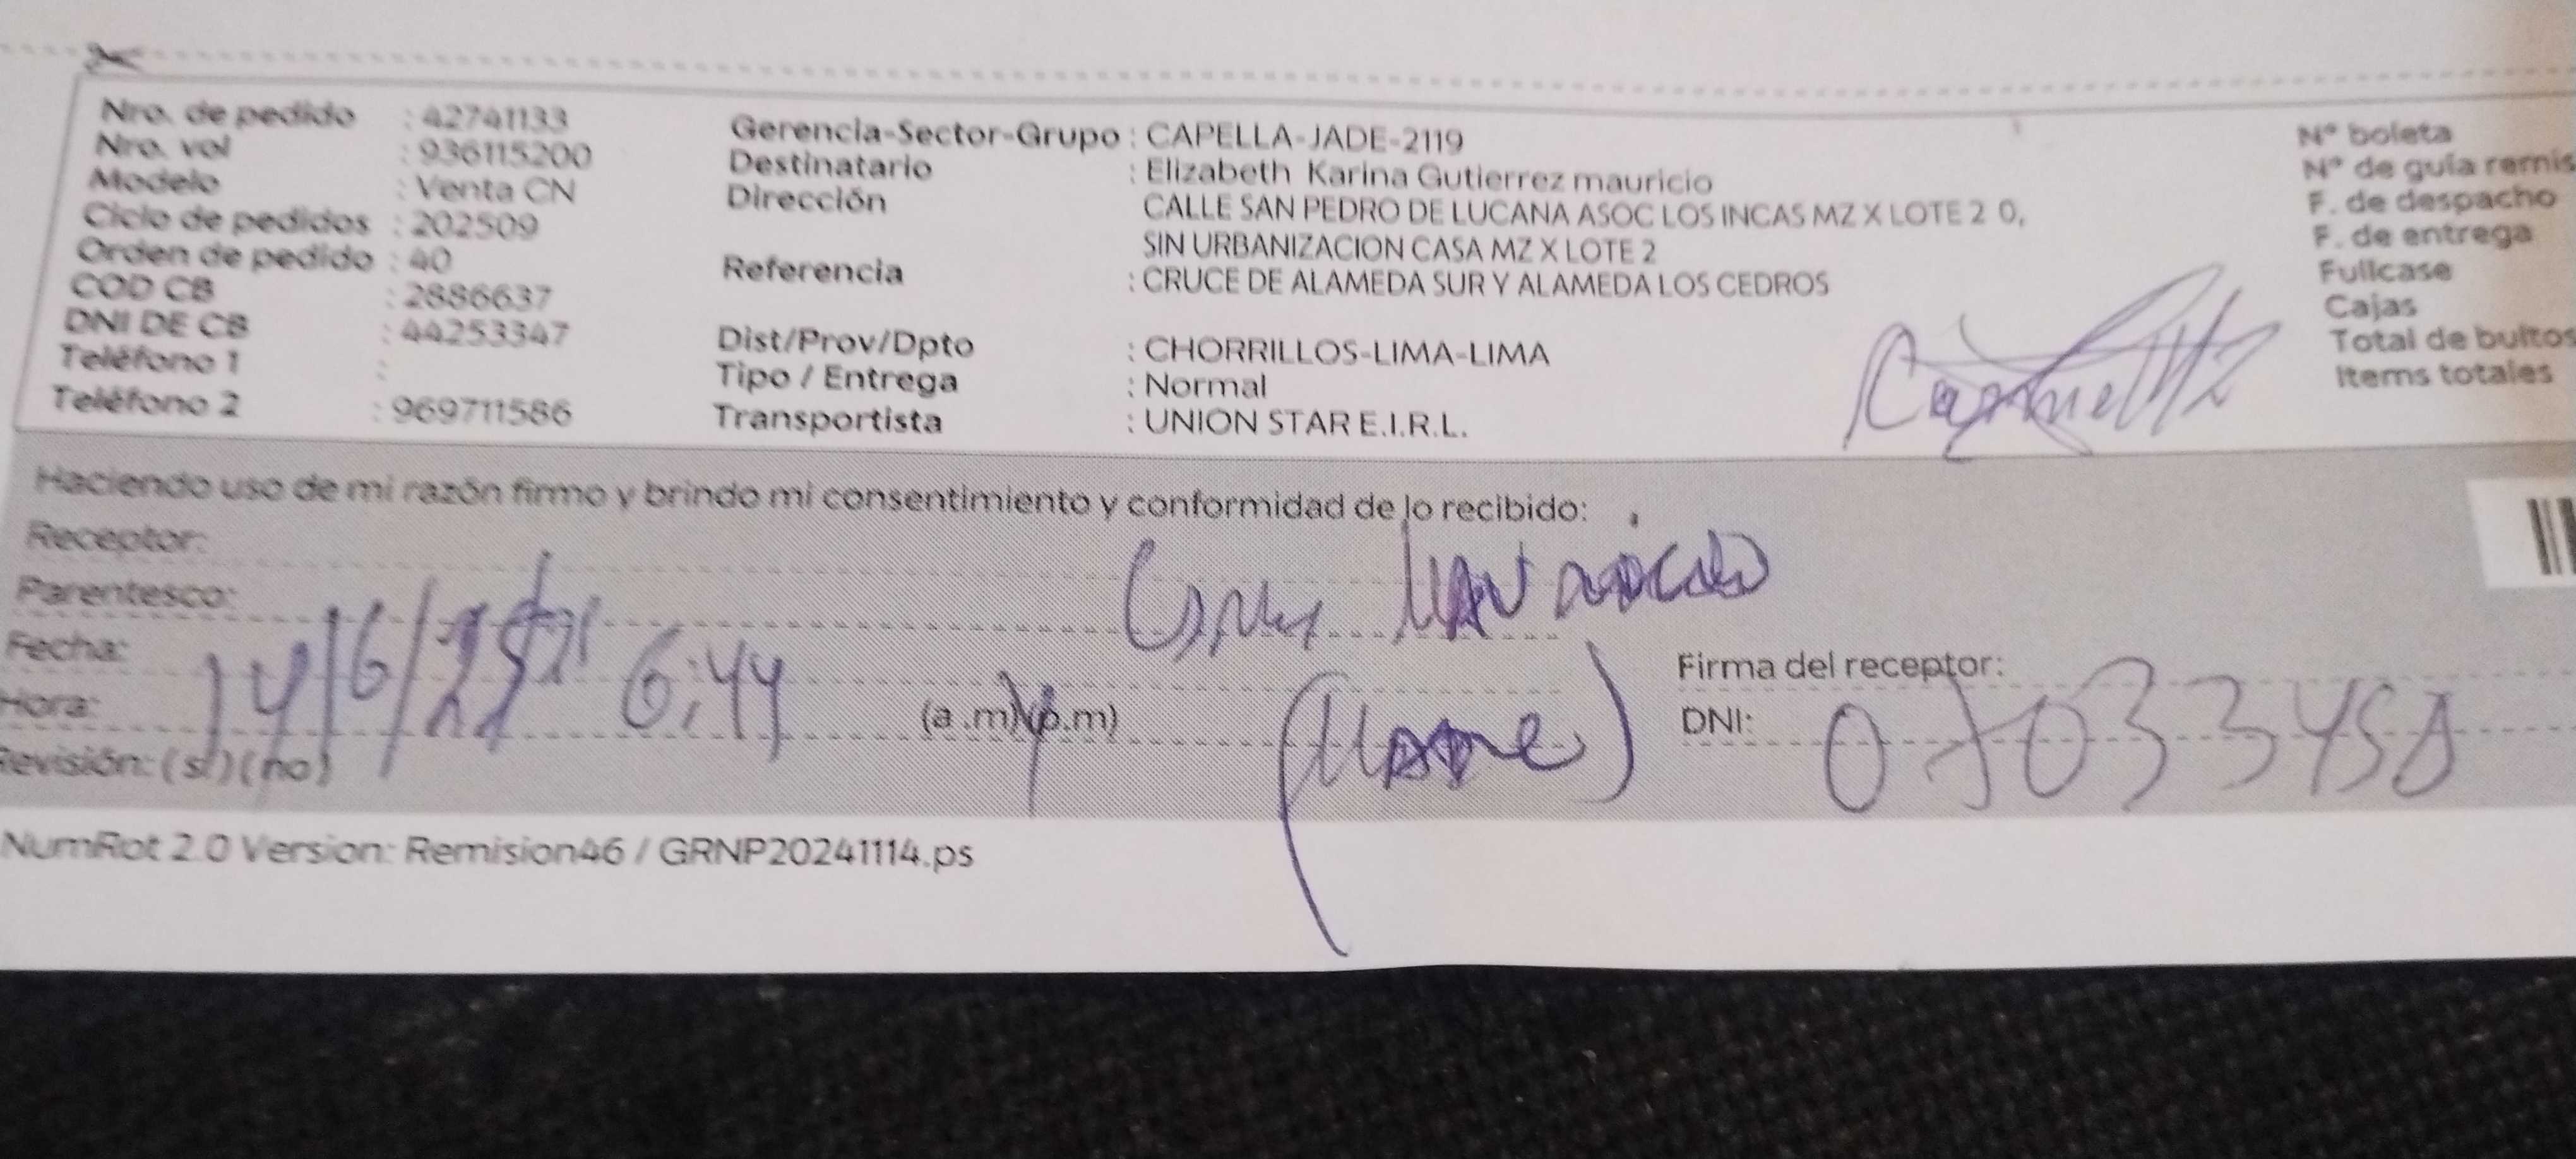 Nro. de pedido : 42741133
Nro. vol : 936115200
Modelo : Venta CN
Ciclo de pedidos : 202509
Orden de pedido : 40
COD CB : 2886637
DNI DE CB : 44253347
Teléfono 1 :
Teléfono 2 : 969711586
Gerencia-Sector-Grupo : CAPELLA-JADE-2119
Destinatario : Elizabeth Karina Gutierrez mauricio
Dirección CALLE SAN PEDRO DE LUCANA ASOC LOS INCAS MZ X LOTE 2 0,
SIN URBANIZACION CASA MZ X LOTE 2
Referencia : CRUCE DE ALAMEDA SUR Y ALAMEDA LOS CEDROS
Dist/Prov/Dpto : CHORRILLOS-LIMA-LIMA
Tipo / Entrega : Normal
Transportista : UNION STAR E.I.R.L.
N° boleta
N° de guía remis
F. de despacho
F. de entrega
Fullcase
Cajas
Total de bultos
Items totales
Haciendo uso de mi razón firmo y brindo mi consentimiento y conformidad de lo recibido:
Receptor:
Parentesco:
Fecha: 14/6/25
Hora: 6:44 (a.m) (p.m)
Firma del receptor:
DNI:
Revisión: (sí) (no)
NumRot 2.0 Version: Remision46 / GRNP20241114.ps